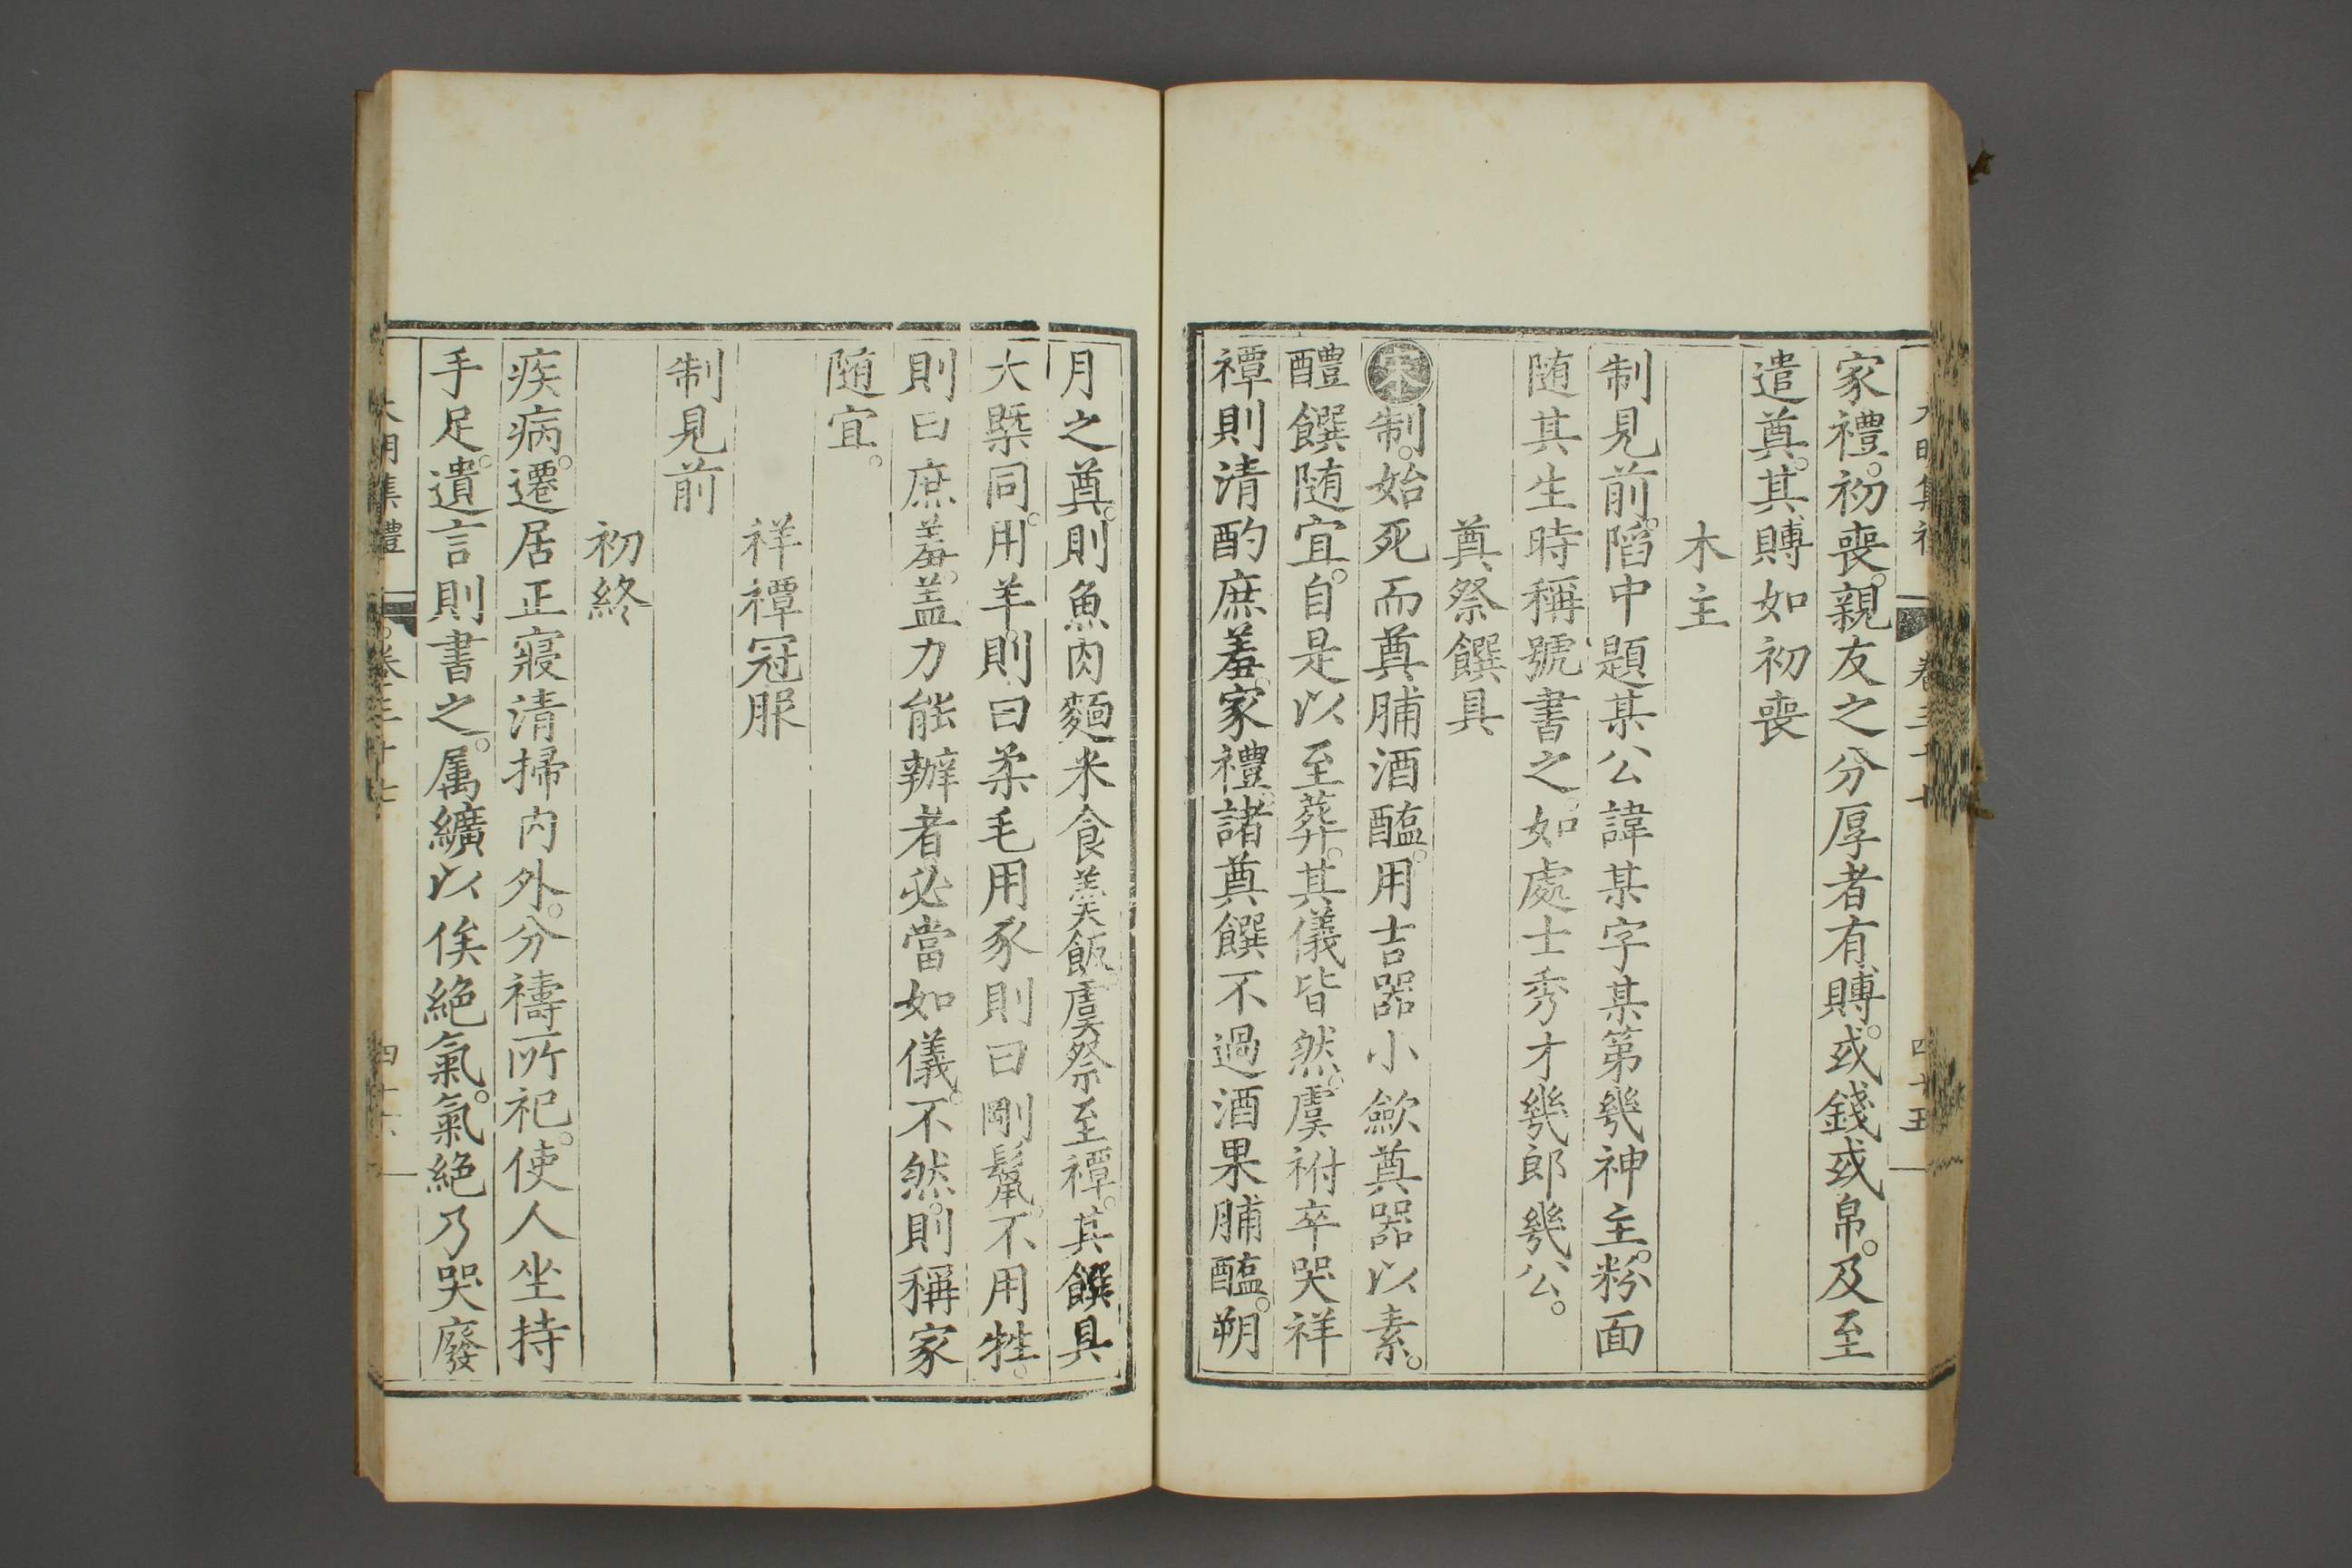 家禮。初喪。親友之分厚者有賻。或錢或帛。及至
遣奠。其賻如初喪
木主
制見前。䧟中題某公諱某字某第幾神主。粉面
随其生時稱號書之。如處士秀才幾郎幾公。
奠祭饌具
宋制。始死而奠脯酒醢。用吉器小歛奠器以素。
醴饌随宜。自是以至葬。其儀皆然。虞祔卒哭祥
禫則清酌庶羞。家禮。諸奠饌不過酒果脯醢。朔
月之奠。則魚肉麵米食羹飯。虞祭至禫。其饌具
大槩同。用羊。則曰柔毛用豕則曰剛鬣。不用牲。
則曰庶羞。盖力能辦者必當如儀。不然。則稱家
随宜。
祥禫冠服
制見前
初終
疾病。遷居正寢清掃內外。分禱所祀。使人坐持
手足。遺言則書之。属纊以俟絶氣。氣絶乃哭廢
大明集禮
卷三十七
四十六